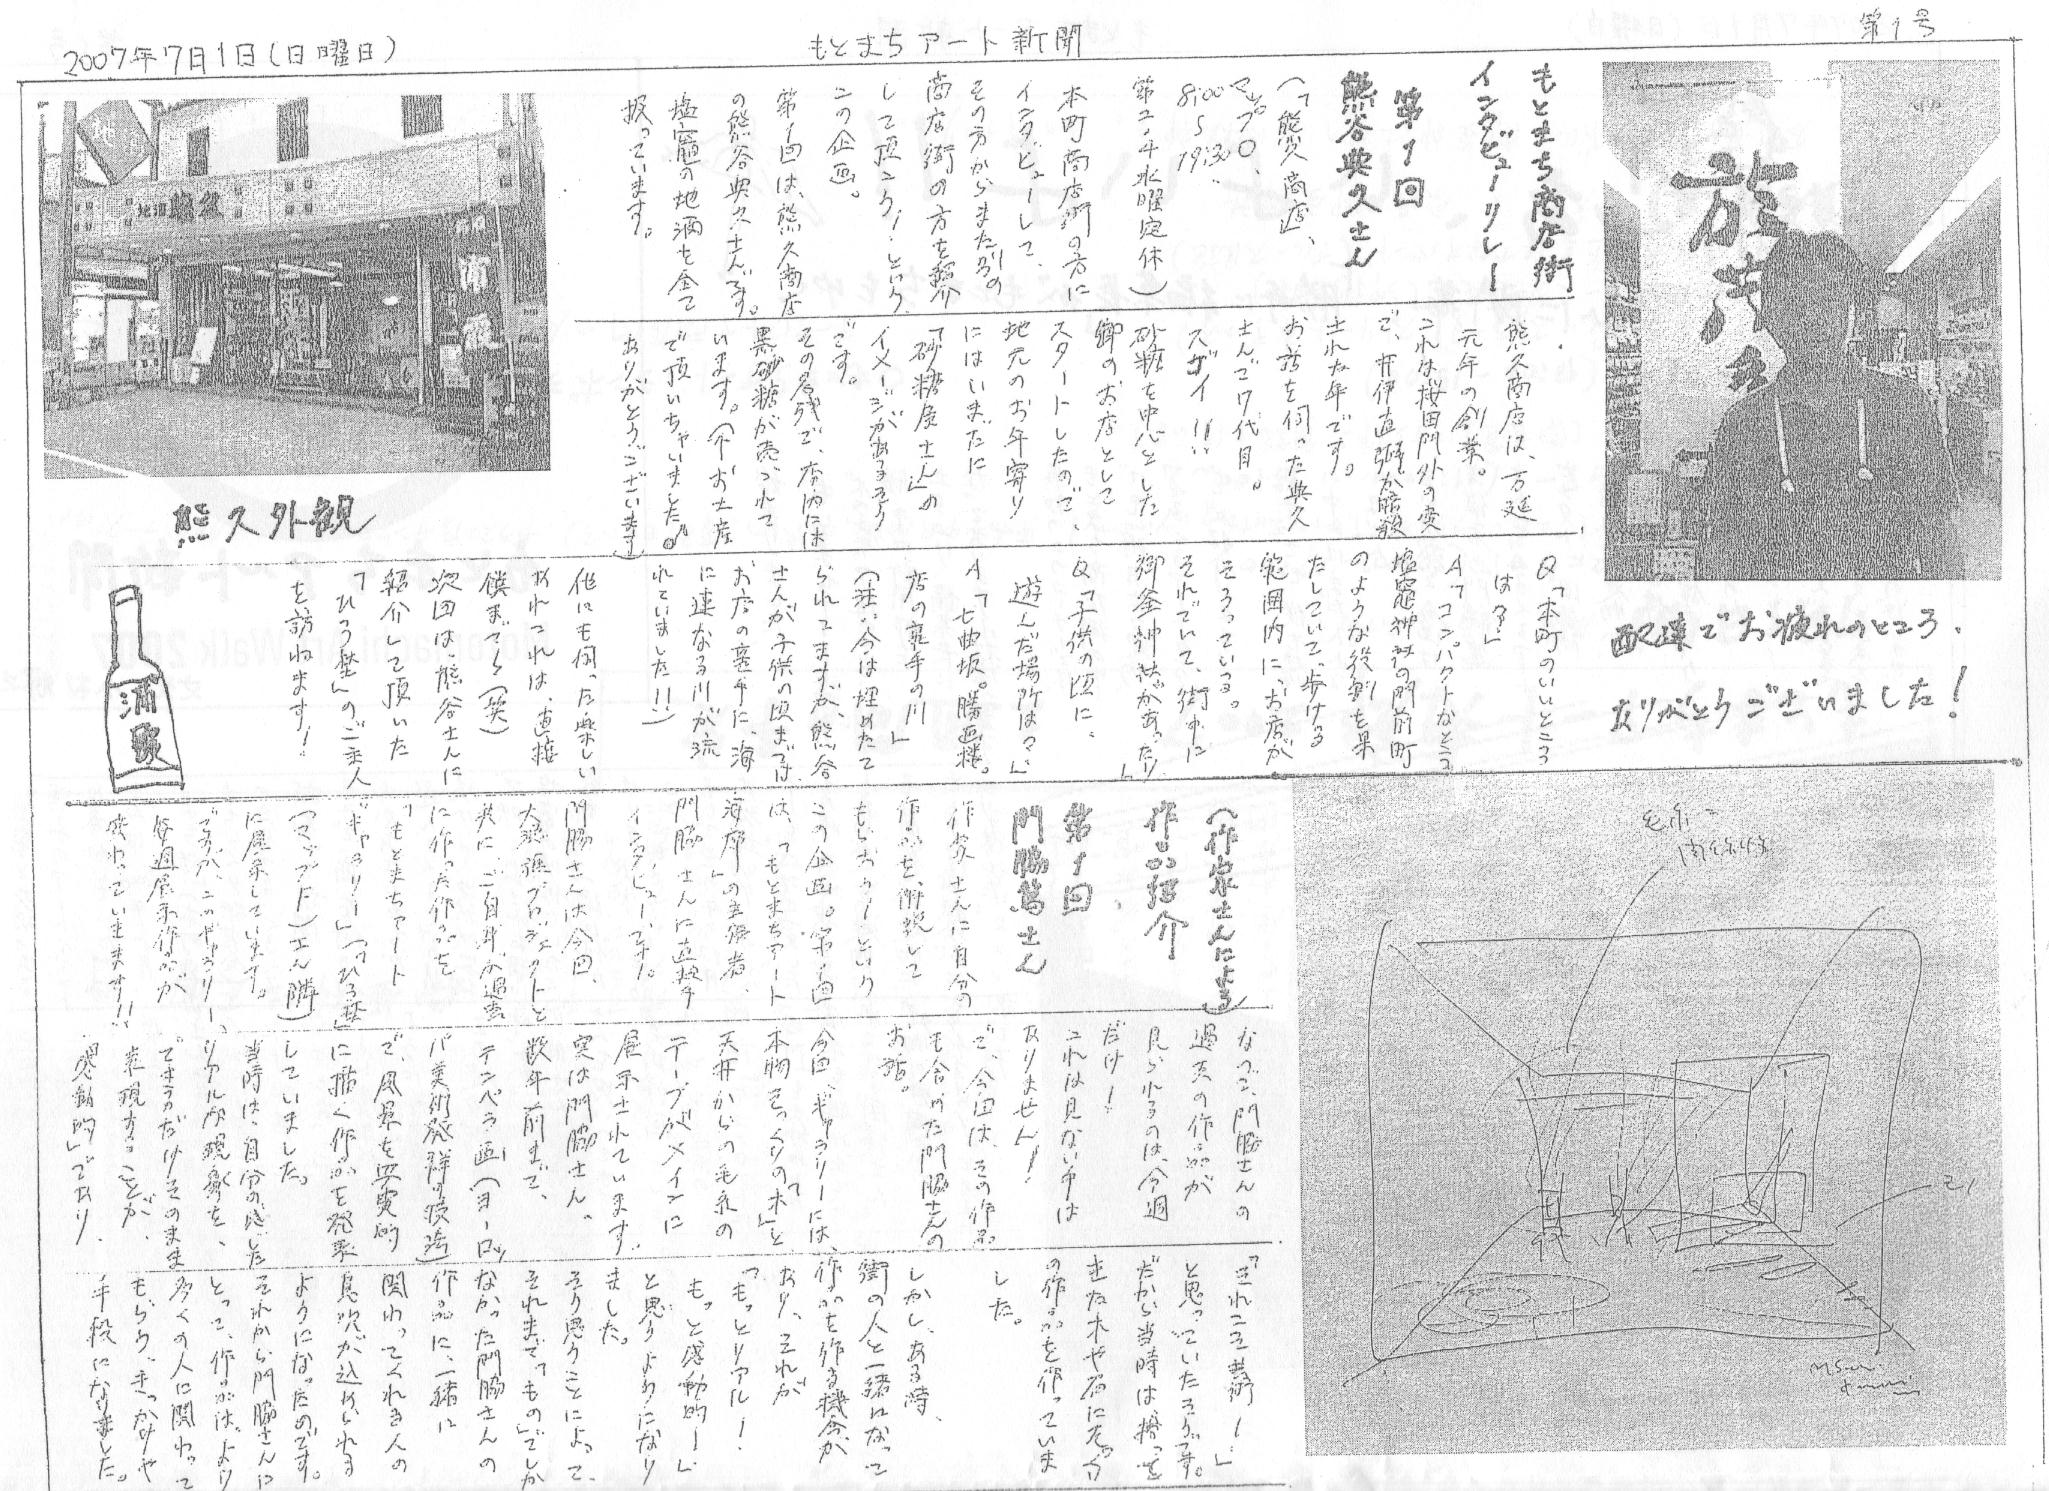 2007年7月1日(日曜日)
もとまちアート新聞
第1号
もとまち商店街
インタビューリレー
第1回
熊谷典久さん
(「熊久商店」
マップ○、
8:00〜19:30
第2・4水曜定休)
本町商店街の方に
インタビューして、
その方からまた別の
商店街の方を紹介
して頂こう!という
この企画。
第1回は、熊久商店
の熊谷典久さんです。
塩竈の地酒も全て
扱っています。
熊久商店は、万延
元年の創業。
これは桜田門外の変
で、井伊直弼が暗殺
された年です。
お話を伺った典久
さんで7代目。
スゴイ!!
砂糖を中心とした
卸のお店として
スタートしたので、
地元のお年寄り
にはいまだに
「砂糖屋さん」の
イメージがあるそう
です。
その名残で、店内には
黒砂糖が売られて
います。(お土産
で頂いちゃいました。
ありがとうございます)
Q「本町のいいところ
は?」
A「コンパクトなところ
塩竈神社の門前町
のような役割を果
たしていて、歩ける
範囲内に、お店が
そろっている。
それでいて、街中に
御釜神社があったり」
Q「子供の頃に、
遊んだ場所は?」
A「七曲坂。勝画楼。
店の裏手の川」
(注:今は埋めたて
られてますが、熊谷
さんが子供の頃までは、
お店の裏手に、海
に連なる川が流
れていました!!)
他にも伺った楽しい
あれこれは、直接
僕まで〜(笑)
次回は、熊谷さんに
紹介して頂いた
「ひろ埜」のご主人
を訪ねます!
熊久外観
浦霞
配達でお疲れのところ、
ありがとうございました!
(作家さんによる)
作品紹介
第1回
門脇篤さん
作家さんに自分の
作品を、解説して
もらおう!という
この企画。第1回
は、「もとまちアート
海廊」の主催者、
門脇さんに直撃
インタビュー!です。
門脇さんは今回、
大漁旗プロジェクトと
共に、ご自身が過去
に作った作品を
「もとまちアート
ギャラリー」(「ひろ埜」
(マップF)さん隣)
に展示しています。
ですが、このギャラリー、
毎週展示作品が
変わっていきます!!
なので、門脇さんの
過去の作品が
見られるのは、今週
だけ!
これは見ない手は
ありません!
で、今回は、その作品
も含めた門脇さんの
お話。
今回、ギャラリーには、
本物そっくりの「木」と
天井からの毛糸の
テープがメインに
展示されています。
実は門脇さん。
数年前まで、
テンペラ画(ヨーロッ
パ美術発祥の技法)
で、風景を写実的
に描く作品を発表
していました。
当時は、自分の感じた
リアルな現象を、
できうるだけそのまま
表現することが、
「感動的」であり、
「それこそ芸術!」
と思っていたそうです。
だから当時は、拾って
きた木や石に
の作品を作っていま
した。
しかし、ある時、
街の人と一緒になって
作品を作る機会が
あり、それが
「もっとリアル!
もっと感動的!」
と思うようになり
ました。
そう思うことによって、
それまで「もの」でしか
なかった門脇さんの
作品に、一緒に
関わってくれる人の
息吹が込められる
ようになったのです。
それから門脇さんに
とって、作品は、より
多くの人に関わって
もらう、きっかけや
手段になりました。
モノ